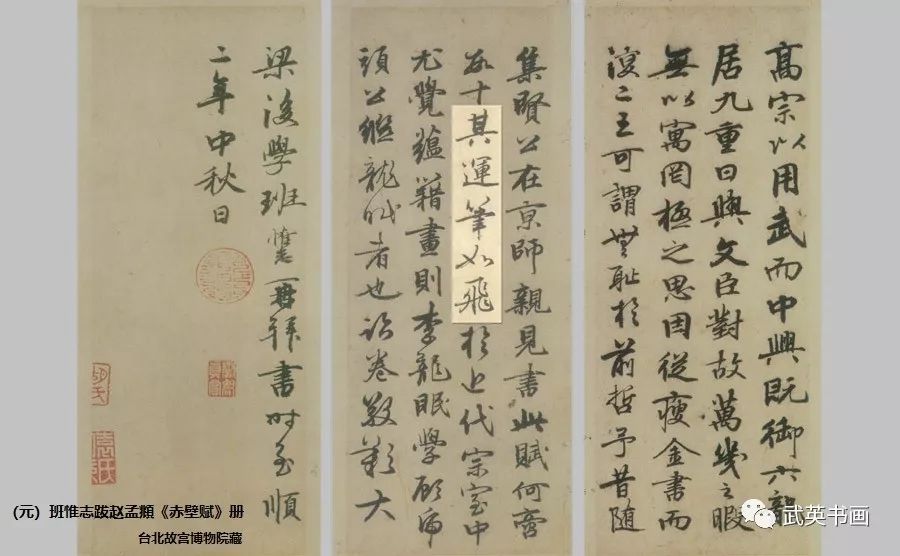 高宗以用武而中興既御六龍
居九重日與文臣對故萬幾之暇
無以寓罔極之思因從瘦金書而
復二王可謂無恥於前哲予昔隨
集賢公在京師親見書此賦何啻
數十其運筆如飛於近代宗室中
尤覺蘊籍畫則李龍眠學顧虎
頭公繼龍眠者也卷歎大
梁後學班惟志再拜書時至順
二年中秋日
(元) 班惟志跋赵孟頫《赤壁赋》册
台北故宫博物院藏
武英书画